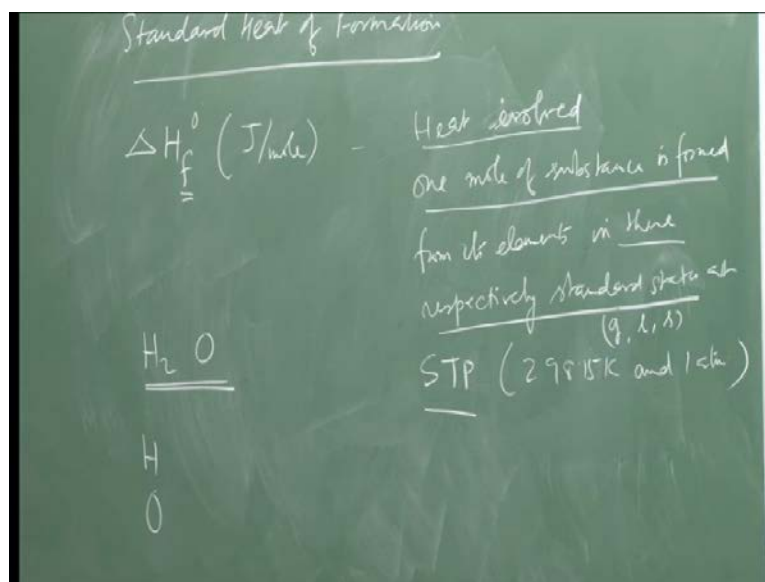 Standard Heat of Formation
ΔH°f (J/mole) - Heat evolved
one mole of substance is formed
from its elements in there
respectively standard state at
(g, l, s)
H₂ O
STP (298.15K and 1 atm)
H
O